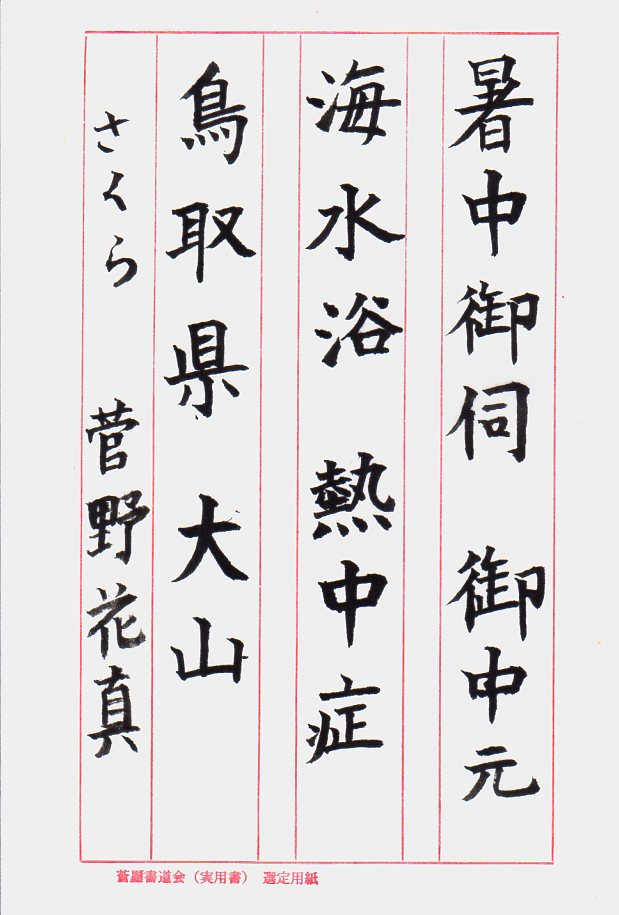 暑中御伺　御中元
海水浴　熱中症
鳥取県　大山
さくら　菅野花真
書道会（実用書）　選定用紙